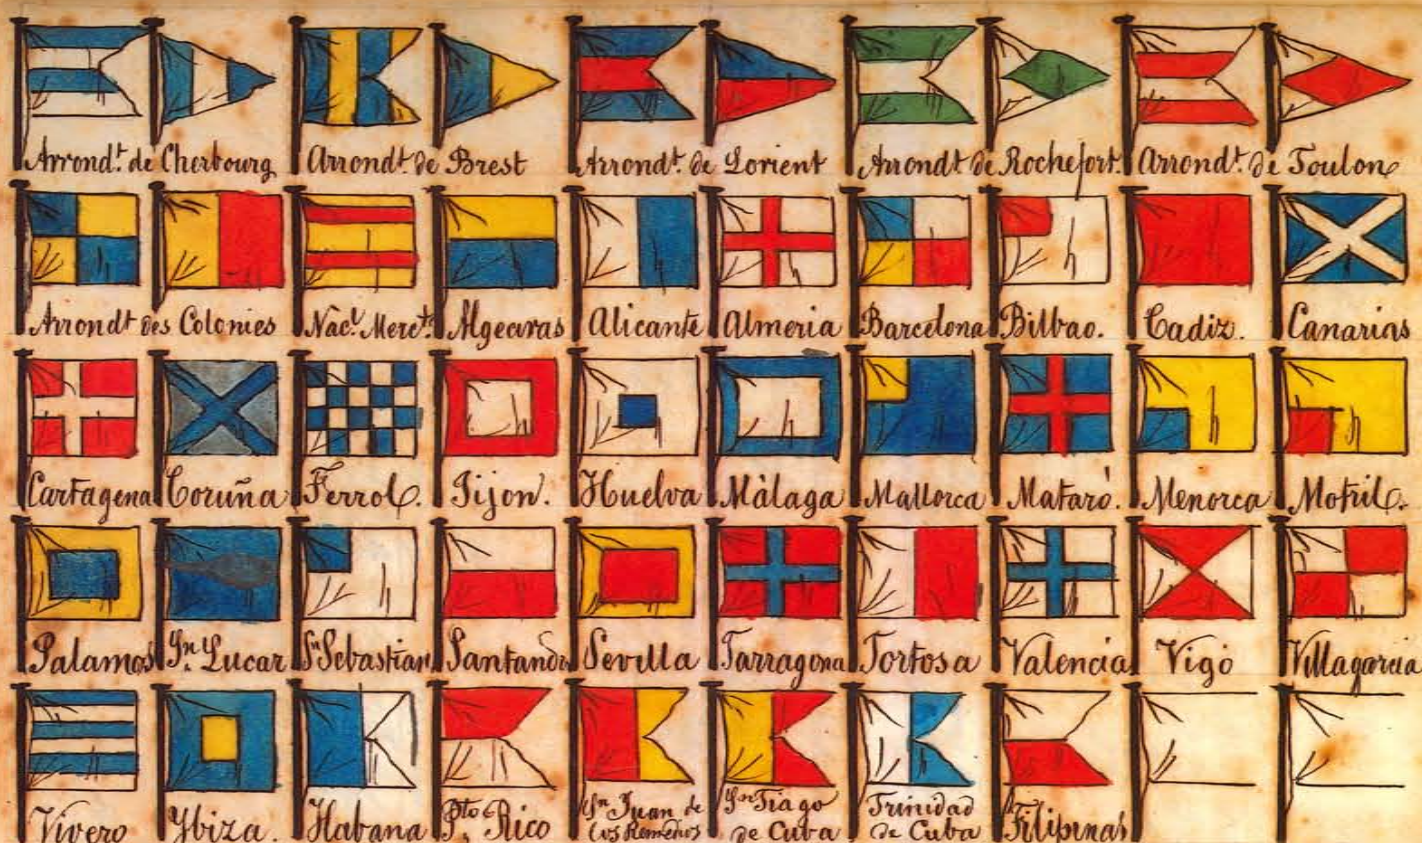 Arrond.t de Cherbourg
Arrond.t de Brest
Arrond.t de Lorient
Arrond.t de Rochefort.
Arrond.t de Toulon
Arrondt des Colonies
Nac.l Merc.te
Algeciras
Alicante
Almeria
Barcelona
Bilbao.
Cadiz.
Canarias
Cartagena
Coruña
Ferrol.
Jijon.
Huelva
Màlaga
Mallorca
Mataró.
Menorca
Motril.
Palamos
Sn. Lucar
Sn Sebastian
Santandr
Sevilla
Tarragona
Tortosa
Valencia
Vigo
Villagarcia
Vivero
Ybiza.
Habana
Pto. Rico
Sn Juan de
los Remedios
Sn Tiago
de Cuba
Trinidad
de Cuba
Filipinas